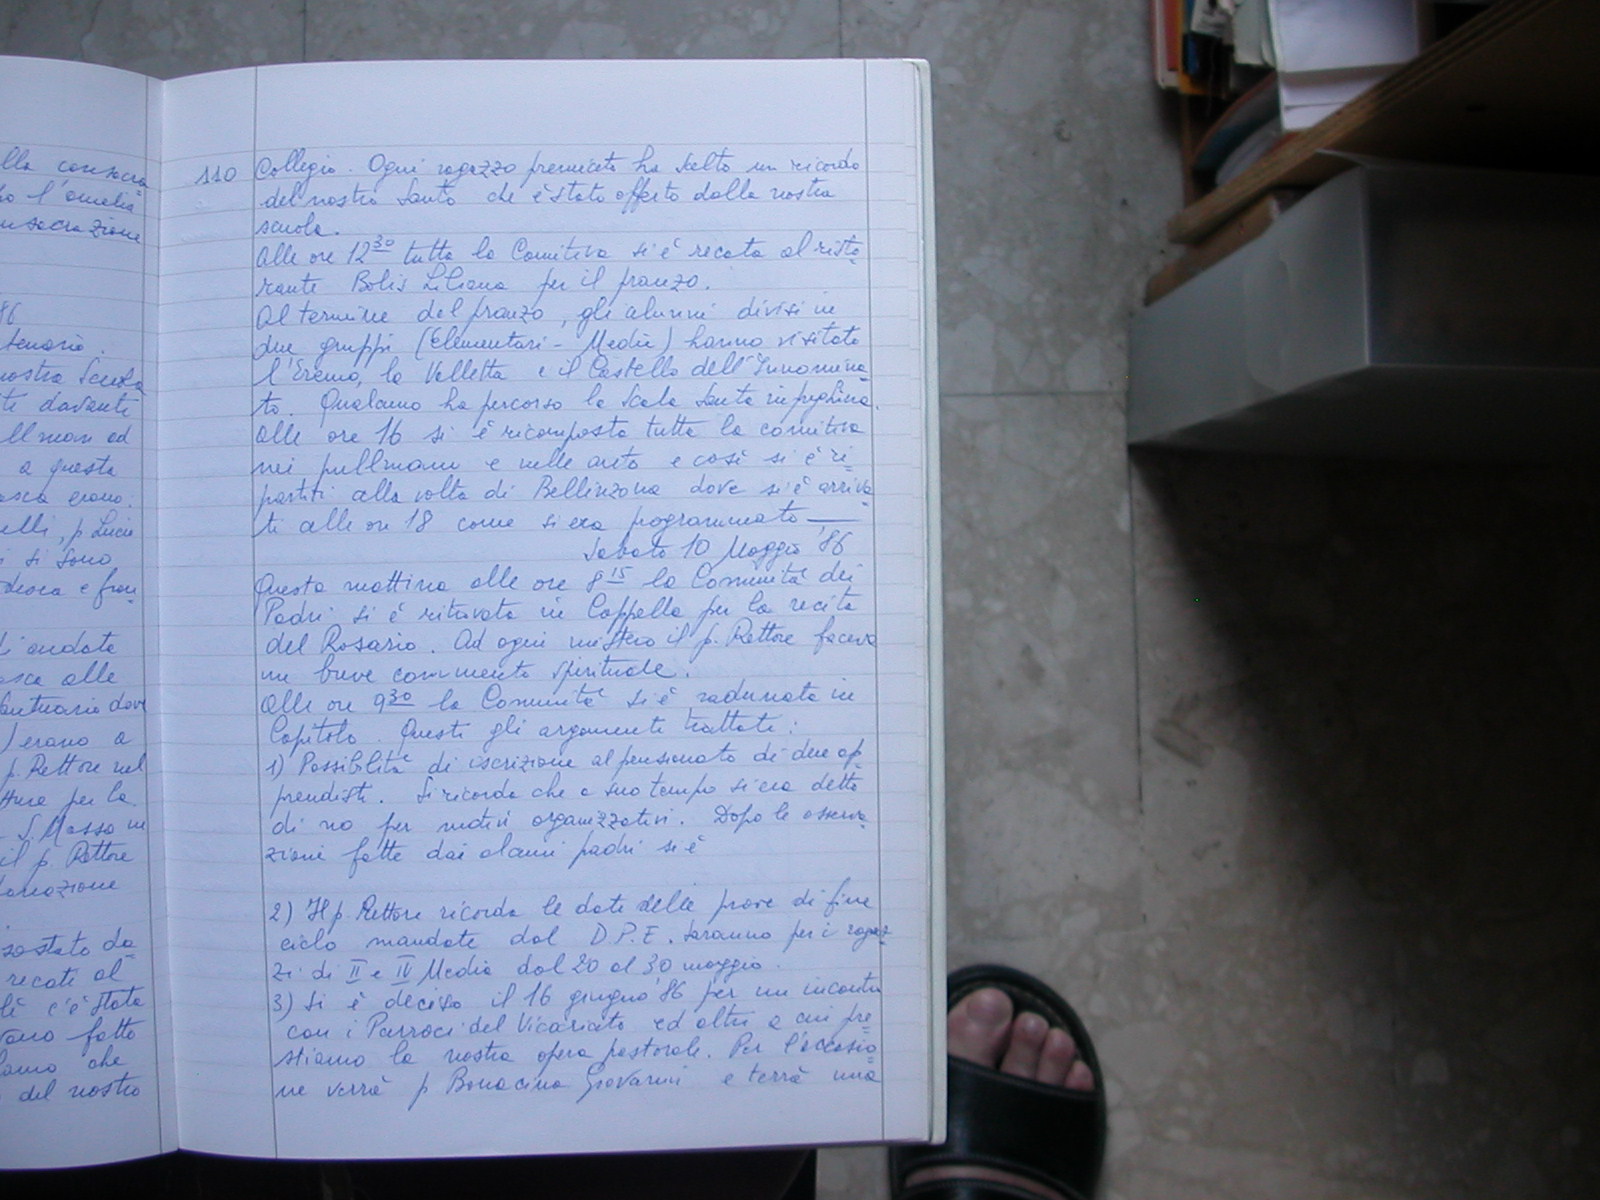 lla consacra=
o l'omelia
nsacrazione
86
tenario.
nostra Scuola
te davanti
ullman ed
a questa
asca erano:
elli, p. Lucio
i si sono
desca e fran=
di andata
asca alle
antuario dove
) erano a
p. Rettore nel
ture per la
S. Massa in
il p. Rettore
so stato da=
recati al
c'è stata
vano fatto
iamo che
del nostro
110
Collegio. Ogni ragazzo premiato ha scelto un ricordo
del nostro Santo che è stato offerto dalla nostra
scuola.
Alle ore 12 30 tutta la Comitiva si è recata al risto=
rante Bolis Liliana per il pranzo.
Al termine del pranzo, gli alunni divisi in
due gruppi (Elementari - Media) hanno visitato
l'Eremo, la Valletta e il Castello dell'Innomina=
to. Qualcuno ha percorso la Scala Santa in preghiera.
Alle ore 16 si è ricomposta tutta la comitiva
nei pullmann e nelle auto e così si è ri=
partiti alla volta di Bellinzona dove si è arriva=
ti alle ore 18 come si era programmato ___
Sabato 10 Maggio '86
Questa mattina alle ore 8 15 la Comunità dei
Padri si è ritrovata in Cappella per la recita
del Rosario. Ad ogni mistero il p. Rettore faceva
un breve commento spirituale.
Alle ore 9 30 la Comunità si è radunata in
Capitolo. Questi gli argomenti trattati:
1) Possibilità di iscrizione al pensionato di due ap=
prendisti. Si ricorda che a suo tempo si era detto
di no per motivi organizzativi. Dopo le osserva=
zioni fatte dai alcuni padri si è
2) Il p. Rettore ricorda le date delle prove di fine
ciclo mandate dal D.P.E. Saranno per i ragaz=
zi di II e IV Media dal 20 al 30 maggio.
3) Si è deciso il 16 giugno '86 per un incontro
con i Parroci del Vicariato ed altri a cui pre=
stiamo la nostra opera pastorale. Per l'occasio=
ne verrà p. Bonacina Giovanni e terrà una